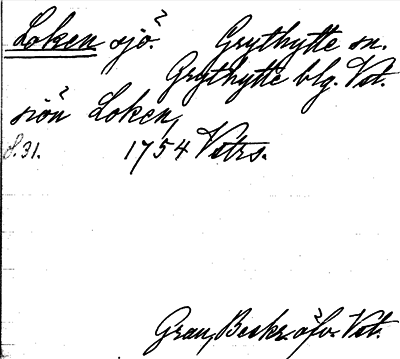 Loken sjö. Grythytte sn.
Grythytte blg. Vst.
siön Loken,
S. 31. 1754 Vstrs.
Grau, Beskr. öfv. Vst.